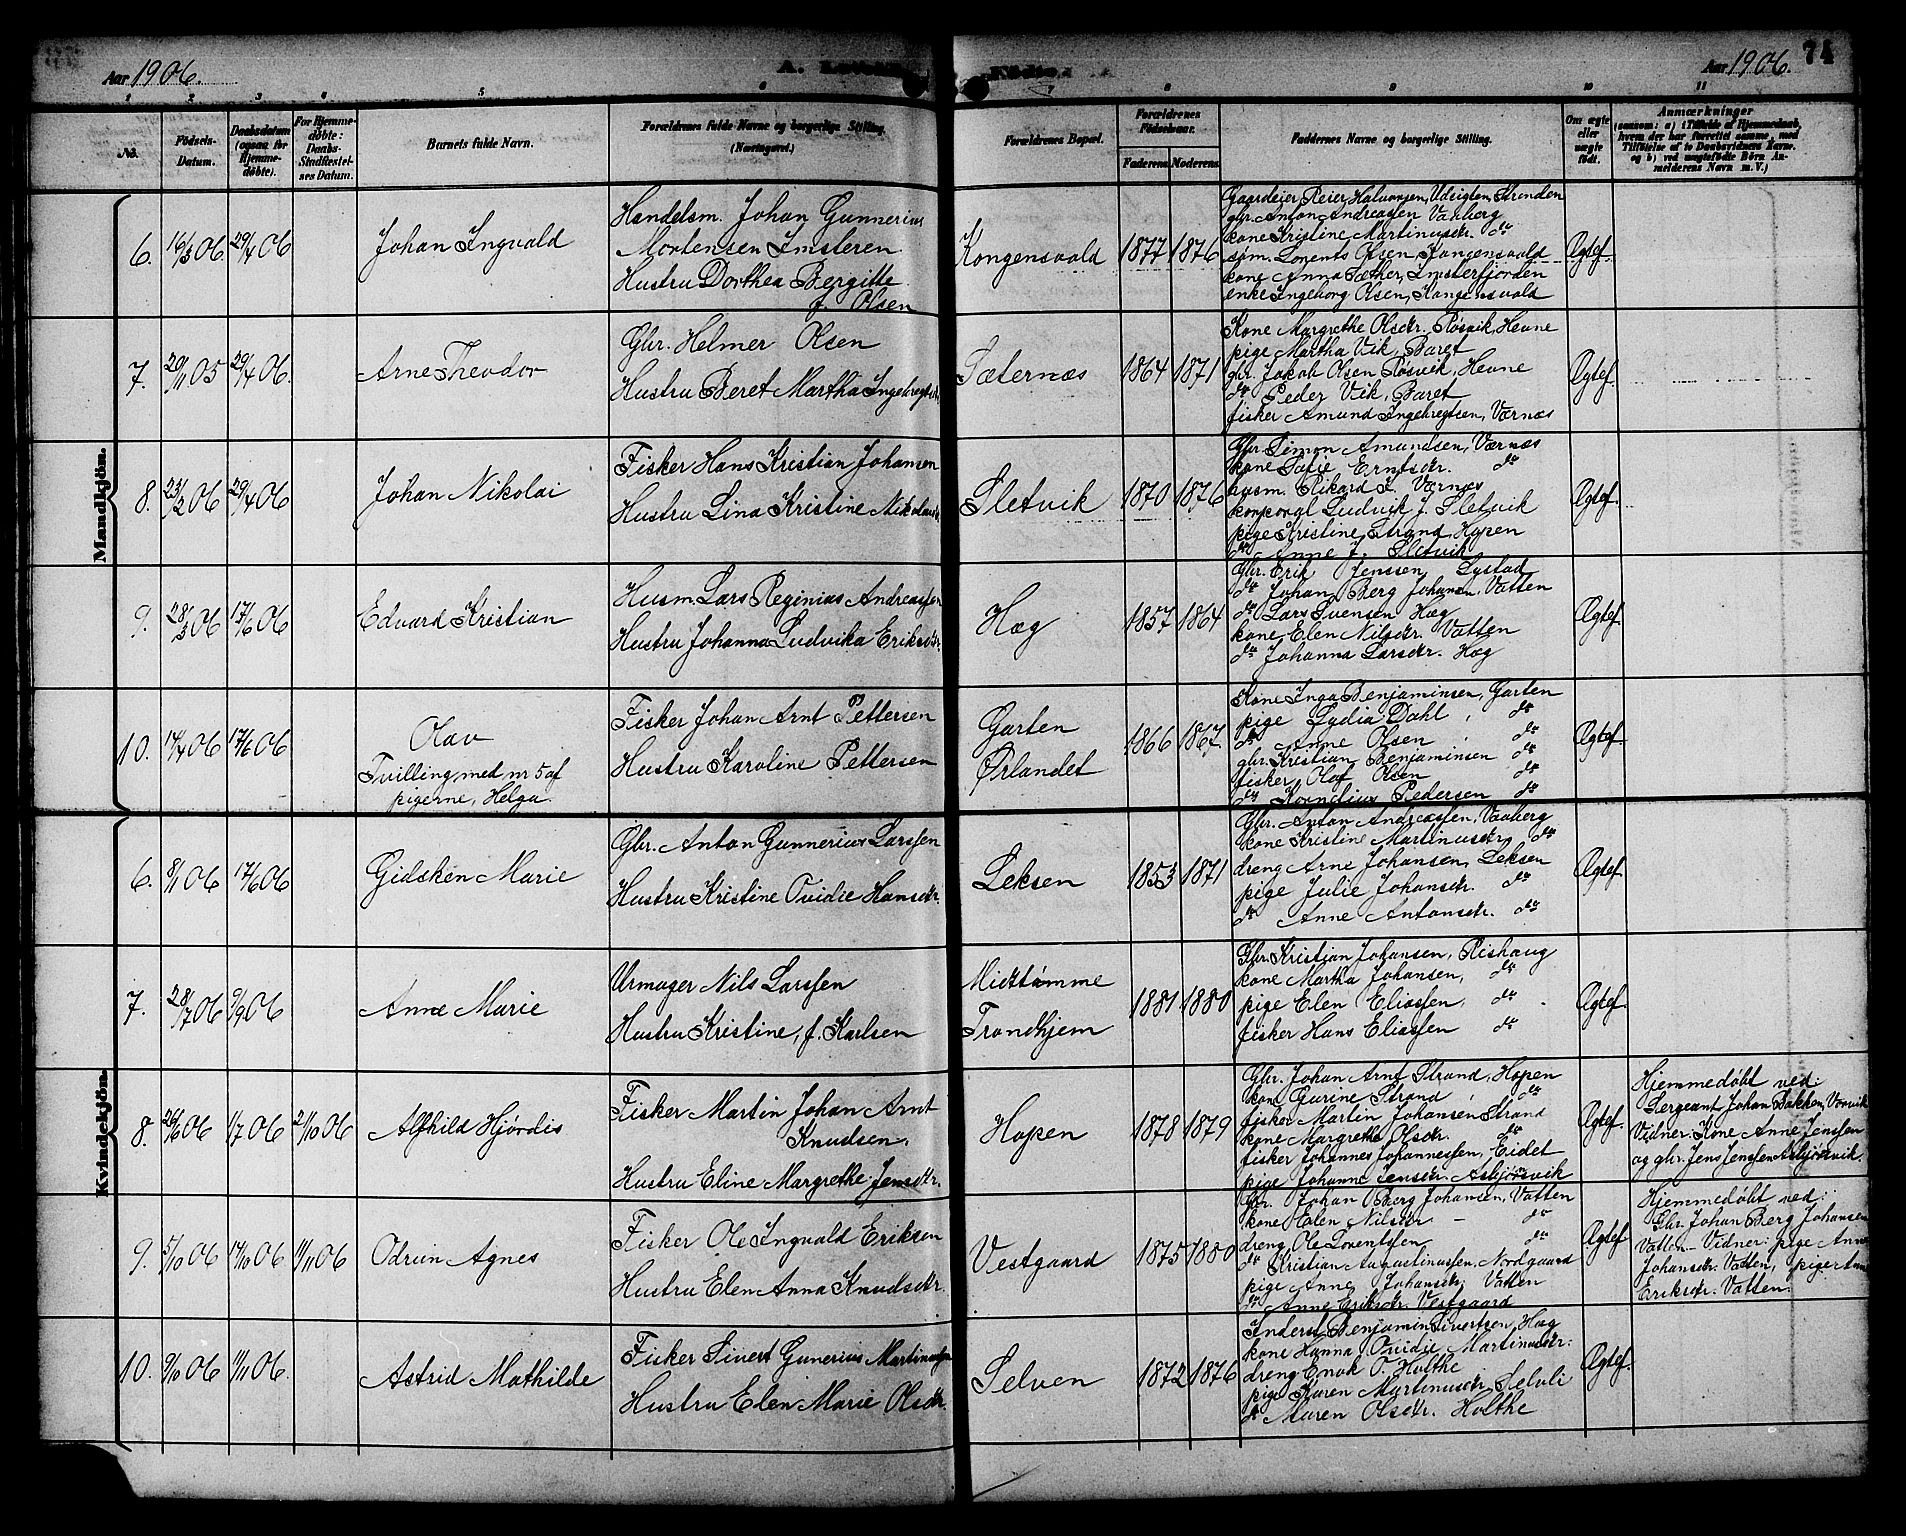 Aar 1906.
A.
Fødte.
Aar 1906.
74
1 2 3 4 5 6 7 8 9 10 11
No.
Fødsels-
Datum.
Daabsdatum
(ogsaa for
Hjemme-
døbte).
For Hjemme-
døbte:
Daabs-
Stadfæstel-
ses Datum.
Barnets fulde Navn.
Forældrenes fulde Navne og borgerlige Stilling.
(Næringsvei.)
Forældrenes Bopæl.
Forældrenes
Fødselsaar.
Faderens.
Moderens.
Faddernes Navne og borgerlige Stilling.
Om ægte
eller
uægte
født.
Anmærkninger
(saasom: a) i Tilfælde af Hjemmedaab,
hvem der har forrettet samme, med
Tilføielse af to Daabsvidners Navne,
og b) ved uægtefødte Børn An-
melderens Navn m. V.)
Mandkjön.
6.
16/3 06
29/4 06
Johan Ingvald
Handelsm. Johan Gunnerius
Mortensen Imsteren
Hustru Dorthea Bergitte
f. Olsen
Kongensvold
1877
1876
Gaardeier Reier Halvorsen, Udsigten, Strinden
gbr. Anton Andreassen Vaaberg
kone Kristine Martinusdtr. do
søm. Lorents Olsen, Kongensvold
kone Anna Sæther, Imsterfjorden
enke Ingeborg Olsen, Kongensvold
Ægtef.
7.
20/11 05
29/4 06.
Arne Theodor
Gbr. Helmer Olsen
Hustru Beret Martha Ingebregtsdtr.
Sæternæs
1864
1871
Kone Margrethe Olsdtr. Røsvik, Hevne
pige Martha Vik, Baret
gbr. Jakob Olsen Røsvik, Hevne
do Peder Vik, Baret
fisker Amund Ingebregtsen, Værnæs
Ægtef.
8.
23/2 06
29/4 06
Johan Nikolai
Fisker Hans Kristian Johansen
Hustru Lina Kristine Nikolausdtr.
Sletvik
1870
1876
Gbr. Simon Amundsen, Værnæs
kone Sofie Erntsdtr. do
husm. Rikard J. Værnæs
korporal Ludvik J. Sletvik
pige Kristine Strand, Hopen
do Anne J. Sletvik
Ægtef.
9.
28/3 06
17/6 06
Edvard Kristian
Husm. Lars Reginius Andreassen
Hustru Johanna Ludvika Eriksdtr.
Hæg
1857
1864
Gbr. Erik Jenssen Lystad
do Johan Berg Johansen, Vatten
do Lars Svensen Hæg
kone Elen Nilsdtr. Vatten
do Johanna Larsdtr. Hæg
Ægtef.
10.
14/4 06
17/6 06
Olav
Tvilling med nr 5 af
pigerne, Helga
Fisker Johan Arnt Pettersen
Hustru Karoline Pettersen
Garten
Ørlandet
1866
1867.
Kone Inga Benjaminsen, Garten
pige Lydia Dahl, do
do Anne Olsen, do
gbr. Kristian Benjaminsen do
fisker Olaf Olsen do
do Kornelius Pedersen do
Ægtef.
Kvindekjön.
6.
8/1 06
17/6 06
Gidsken Marie
Gbr. Anton Gunnerius Larssen
Hustru Kristine Ovidie Hansdtr.
Leksen
1853
1871
Gbr. Anton Andreassen, Vaaberg
kone Kristine Martinusdtr. do
dreng Arne Johansen, Leksen
pige Julie Johansdtr. do
do Anne Antonsdtr. do
Ægtef.
7.
28/7 06
9/9 06
Anne Marie
Urmager Nils Larssen
Hustru Kristine, f. Karlsen
Midttømme
Trondhjem
1881
1880
Gbr. Kristian Johansen, Rishaug
kone Martha Johansen, do
pige Elen Eliassen, do
fisker Hans Eliassen do
Ægtef.
8.
26/6 06
1/7 06
21/10 06
Alfhild Hjørdis
Fisker Martin Johan Arnt
Knudsen,
Hustru Eline Margrethe Jensdtr.
Hopen
1878
1879
Gbr. Johan Arnt Strand, Hopen
kone Gurine Strand, do
fisker Martin Johansen Strand
kone Margrethe Olsdtr. do
fisker Johannes Johannessen, Eidet
pige Johanne Jensdtr. Asbjørsvik
Ægtef.
Hjemmedøbt ved:
Sergeant Johan Bakken, Vorvik
Vidner: Kone Anne Jenssen
og gbr. Jens Jenssen Asbjørsvik.
9.
5/10 06
14/10 06
11/11 06
Odrun Agnes
Fisker Ole Ingvald Eriksen
Hustru Elen Anna Knudsdtr.
Vestgaard
1875
1880
Gbr. Johan Berg Johansen, Vatten
kone Elen Nilsdtr. - do
dreng Ole Lorentsen do
do Kristian Augustinussen, Nordgaard
pige Anne Johansdtr. Vatten
do Anne Eriksdtr. Vestgaard
Ægtef.
Hjemmedøbt ved:
Gbr. Johan Berg Johansen
Vatten - Vidner: pige Anne
Johansdtr. Vatten, pige Anne
Eriksdtr. Vatten.
10.
9/10 06
11/11 06.
Astrid Mathilde
Fisker Sivert Gunerius Martinussen
Hustru Elen Marie Olsdtr.
Selven
1872
1876
Inderst Benjamin Sivertsen, Hæg
kone Hanna Ovidie Martinusdtr.
dreng Enok O. Holthe
pige Karen Martinusdtr. Selvli
do Maren Olsdtr. Holthe
Ægtef.